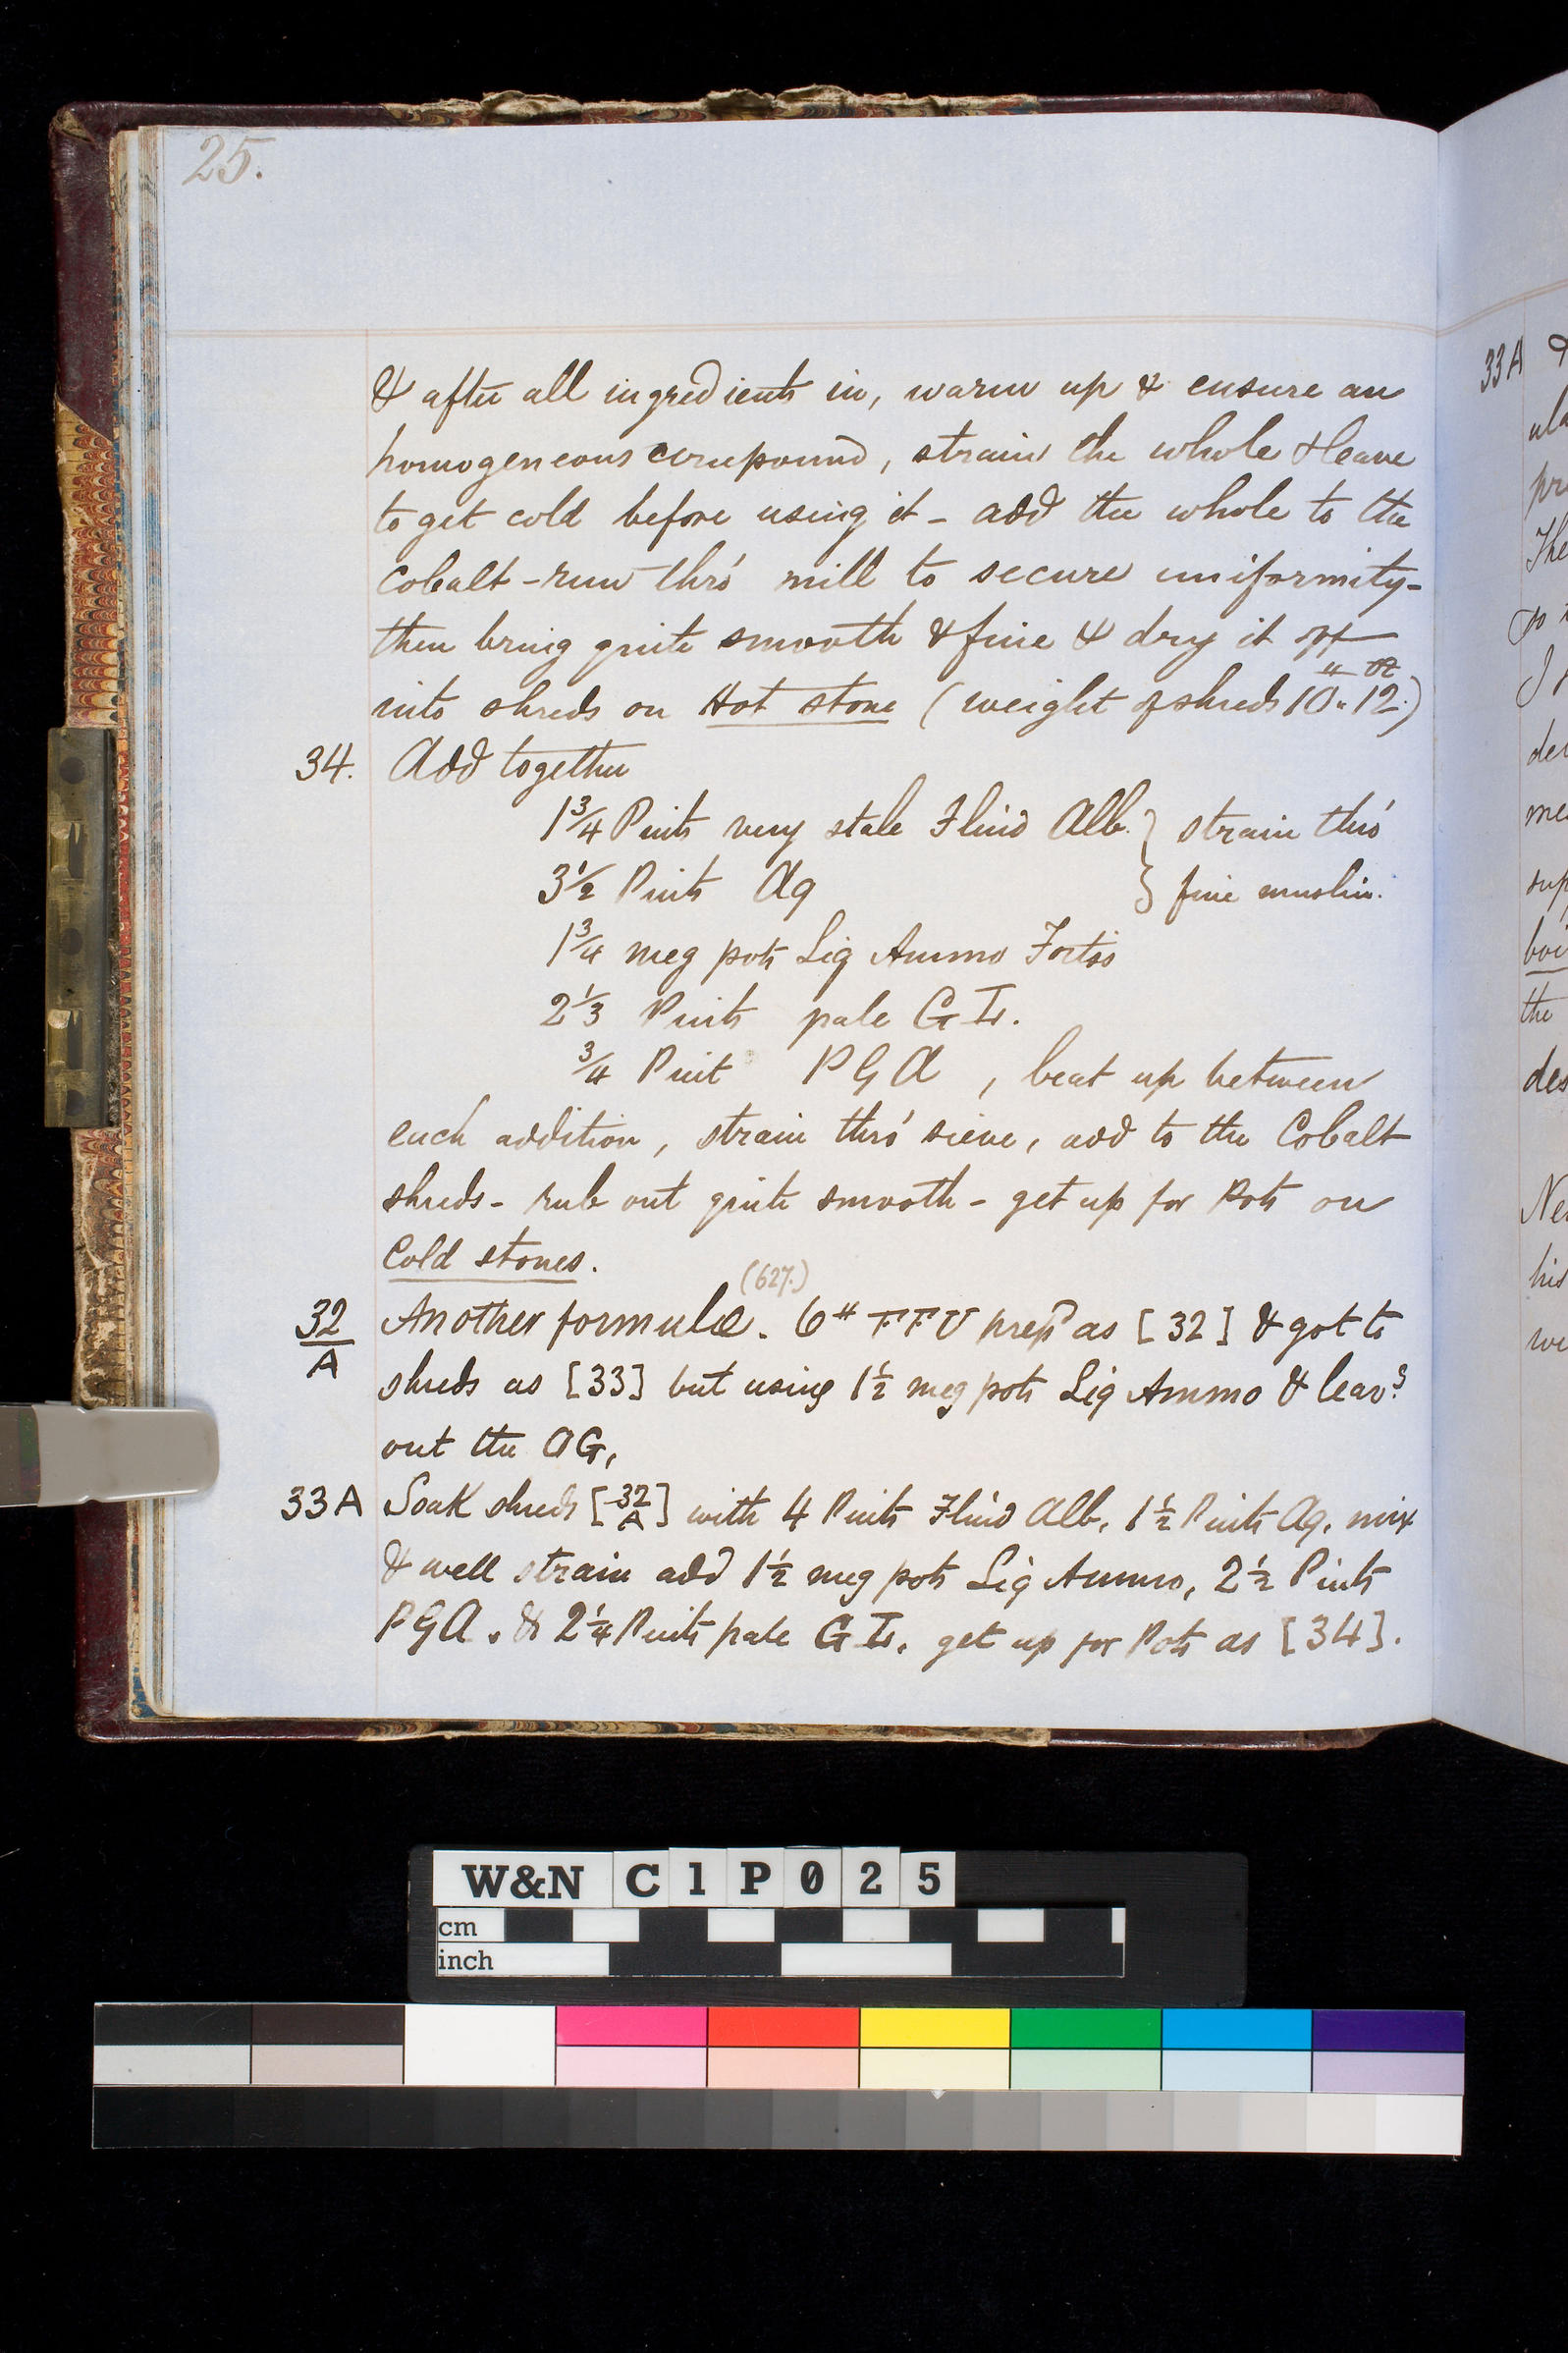 25.
& after all ingredients in, warm up & ensure an
homogeneous compound, strain the whole & leave
to get cold before using it - add the whole to the
Cobalt - run thro' mill to secure uniformity -
then bring quite smooth & fine & dry it off
into shreds on Hot stone (weight of shreds 10 " 12 oz)
34. Add together
1 3/4 Pints very stale Fluid Alb. } strain thro'
3 1/2 Pints Aq } fine muslin.
1 3/4 meg pots Liq Ammo Fortis
2 1/3 Pints pale G L.
3/4 Pint P G A, beat up between
each addition, strain thro' sieve, add to the Cobalt
shreds - rub out quite smooth - get up for Pots on
Cold stones.
(627.)
32/A Another formula. 6# FFU prepd as [32] & got to
shreds as [33] but using 1 1/2 meg pots Liq Ammo & leavg
out the OG,
33A Soak shreds [32/A] with 4 Pints Fluid Alb, 1 1/2 Pints Aq, mix
& well strain add 1 1/2 meg pots Liq Ammo, 2 1/2 Pints
PGA. & 2 1/4 Pints pale G L. get up for Pots as [34].
33A
The
the
his
W&N C1P025
cm
inch